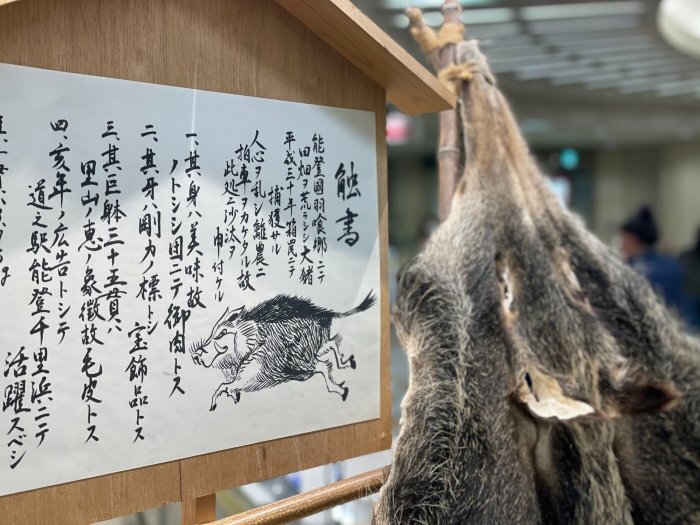 触書
能登國羽喰郷ニテ
田畑ヲ荒ラシシ大猪
平成三十年箱罠ニテ
捕獲セル
人心ヲ乱シ離農ニ
拍車ヲカケタル故
此処ニ沙汰ヲ
申付ケル
一、其身ハ美味故
ノトシシ団ニテ御肉トス
二、其牙ハ剛力ノ標トシ
宝飾品トス
三、其巨躰三十五貫ハ
里山ノ恵ノ象徴故毛皮トス
四、亥年ノ広告トシテ
道之駅能登千里浜ニテ
活躍スベシ